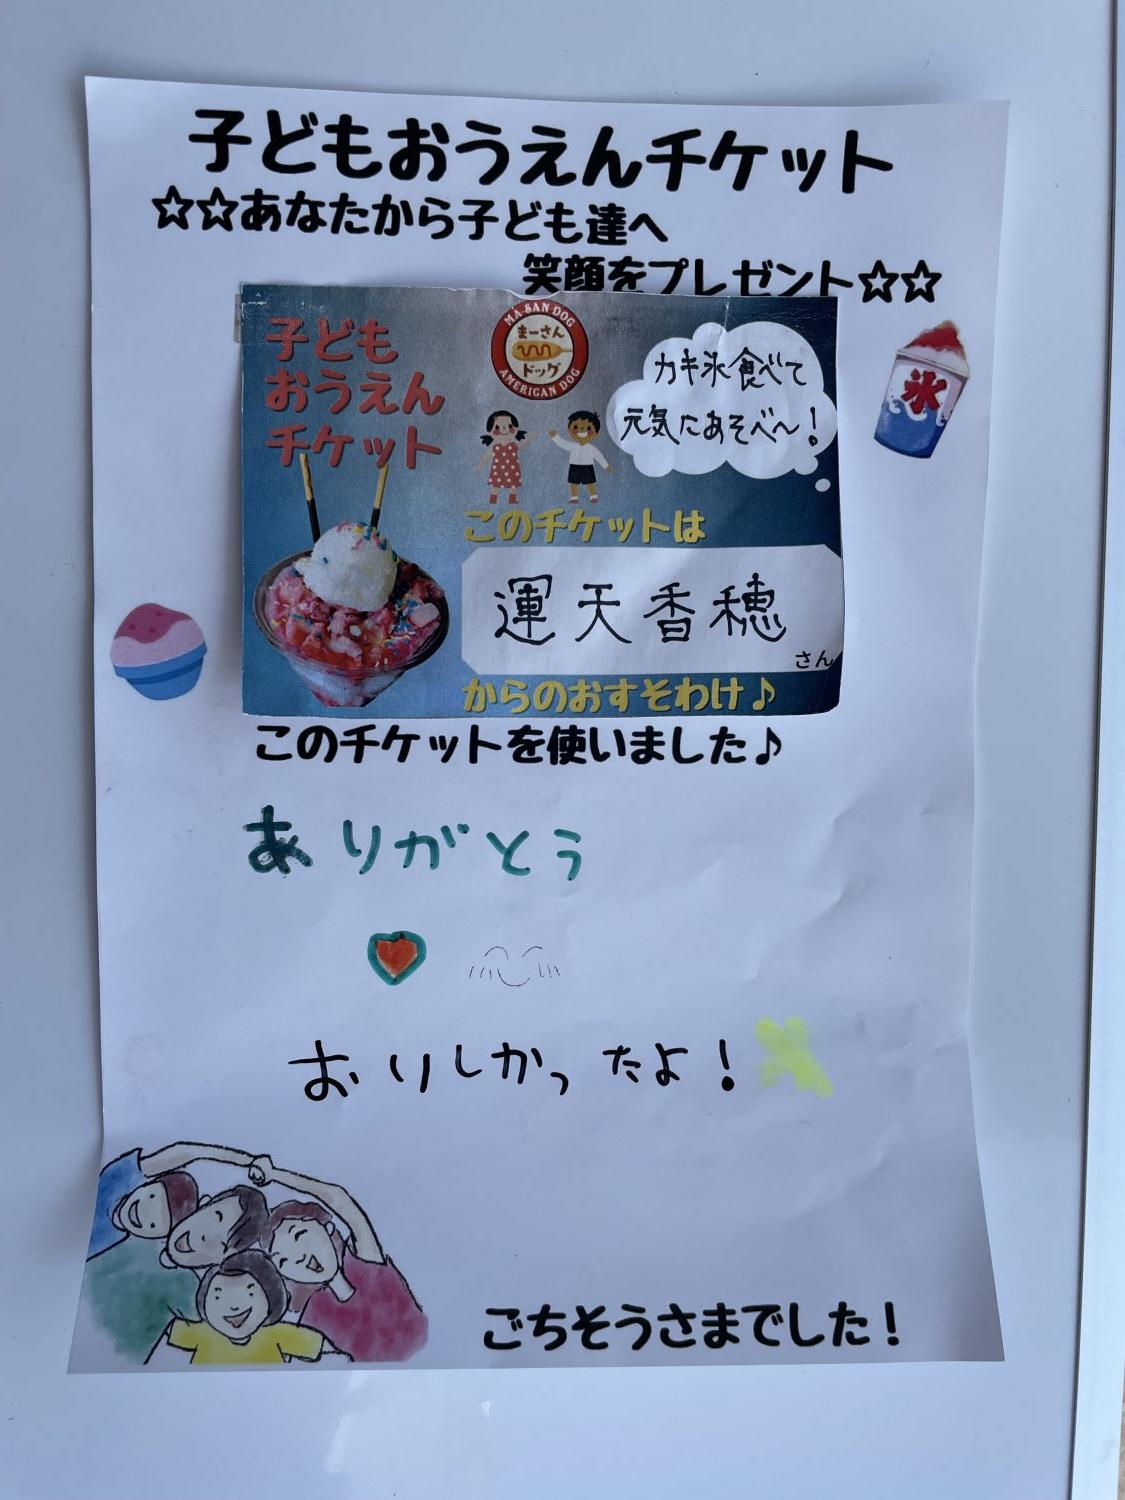 子どもおうえんチケット
☆☆あなたから子ども達へ
笑顔をプレゼント☆☆
子ども
おうえん
チケット
MA-SAN DOG
まーさん
ドッグ
AMERICAN DOG
カキ氷食べて
元気にあそべ〜!
氷
このチケットは
運天香穂
さん
からのおすそわけ♪
このチケットを使いました♪
ありがとう
おいしかったよ!
ごちそうさまでした!